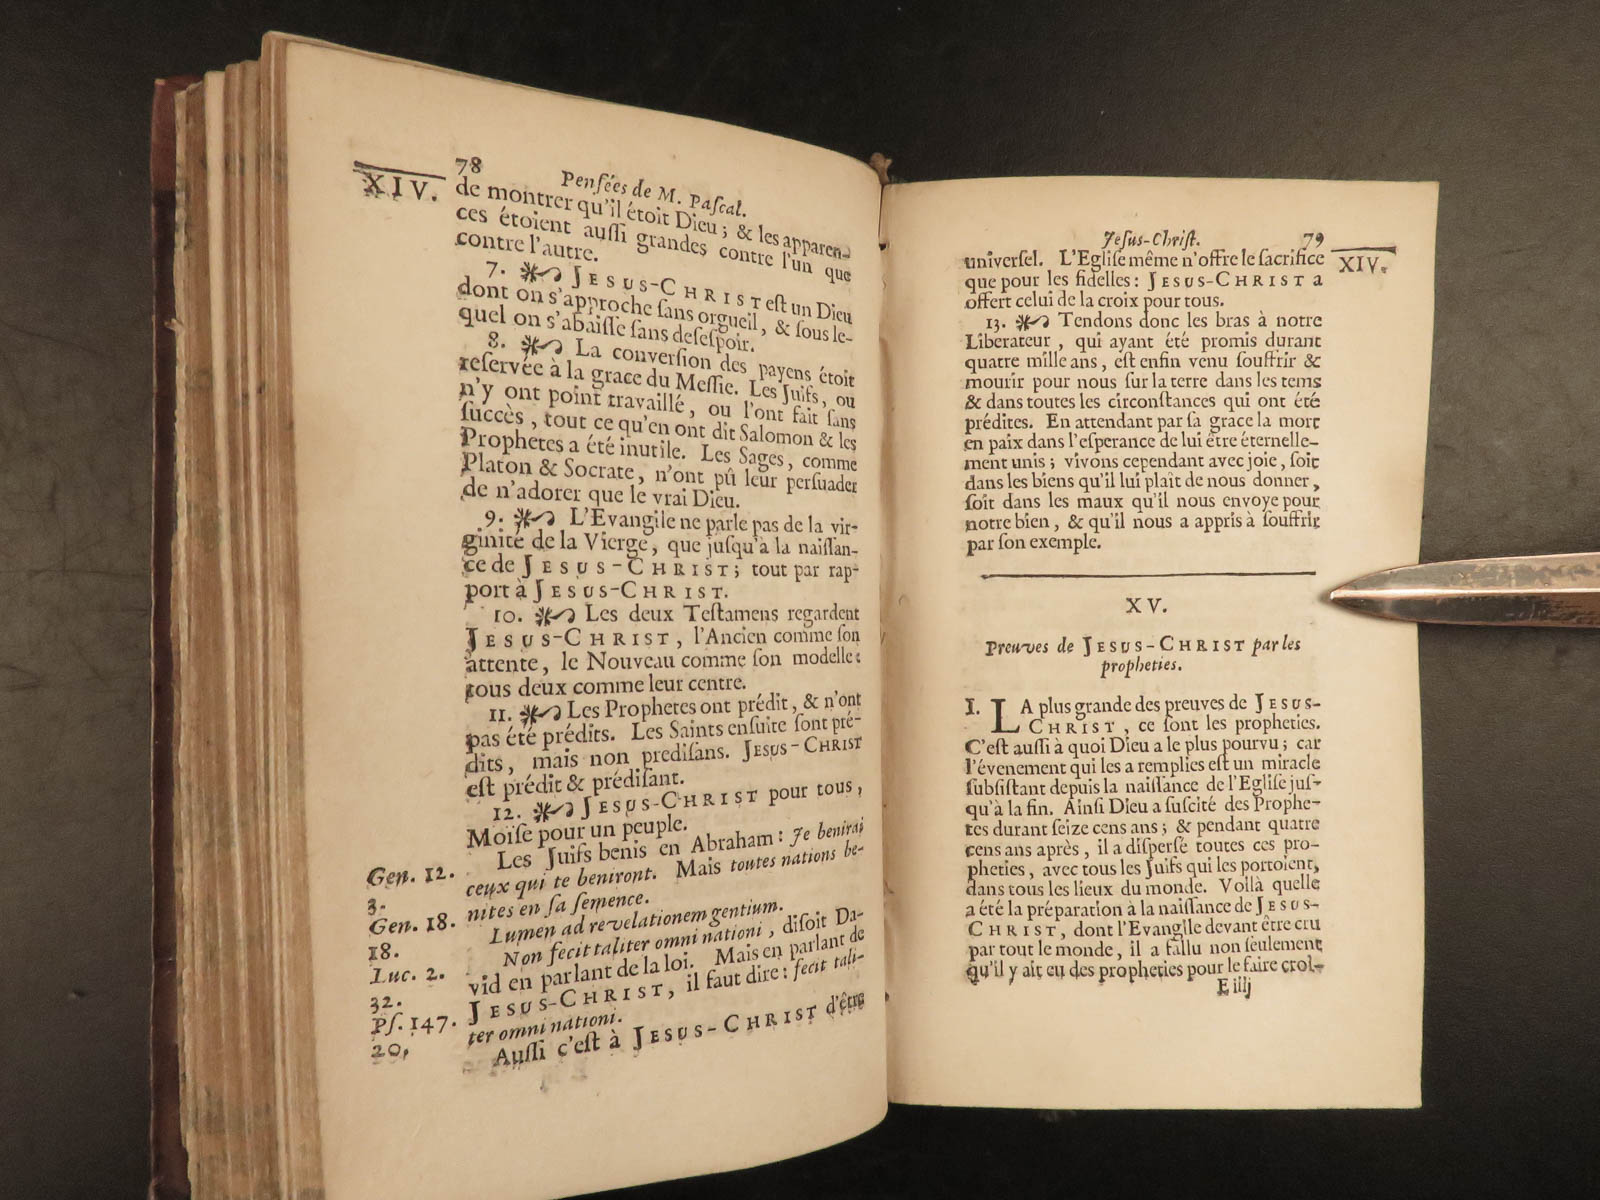 78
Pensées de M. Pascal.
XIV.
de montrer qu'il étoit Dieu ; & les apparen-
ces étoient aussi grandes contre l'un que
contre l'autre.
7. JESUS-CHRIST est un Dieu
dont on s'approche sans orgueil, & sous le-
quel on s'abaisse sans desespoir.
8. La conversion des payens étoit
reservée à la grace du Messie. Les Juifs, ou
n'y ont point travaillé, ou l'ont fait sans
succès, tout ce qu'en ont dit Salomon & les
Prophetes a été inutile. Les Sages, comme
Platon & Socrate, n'ont pû leur persuader
de n'adorer que le vrai Dieu.
9. L'Evangile ne parle pas de la vir-
ginité de la Vierge, que jusqu'à la naissan-
ce de JESUS-CHRIST; tout par rap-
port à JESUS-CHRIST.
10. Les deux Testamens regardent
JESUS-CHRIST, l'Ancien comme son
attente, le Nouveau comme son modelle:
tous deux comme leur centre.
11. Les Prophetes ont prédit, & n'ont
pas été prédits. Les Saints ensuite sont pré-
dits, mais non predisans. JESUS-CHRIST
est prédit & prédisant.
12. JESUS-CHRIST pour tous,
Moïse pour un peuple.
Les Juifs benis en Abraham : Je benirai
Gen. 12.
ceux qui te beniront. Mais toutes nations be-
3.
nites en sa semence.
Gen. 18.
Lumen ad revelationem gentium.
18.
Non fecit taliter omni nationi, disoit Da-
Luc. 2.
vid en parlant de la loi. Mais en parlant de
32.
JESUS-CHRIST, il faut dire : fecit tali-
Ps. 147.
ter omni nationi.
20,
Aussi c'est à JESUS-CHRIST d'être
Jesus-Christ. 79
XIV.
universel. L'Eglise même n'offre le sacrifice
que pour les fidelles : JESUS-CHRIST a
offert celui de la croix pour tous.
13. Tendons donc les bras à notre
Liberateur, qui ayant été promis durant
quatre mille ans, est enfin venu souffrir &
mourir pour nous sur la terre dans les tems
& dans toutes les circonstances qui ont été
prédites. En attendant par sa grace la mort
en paix dans l'esperance de lui être éternelle-
ment unis ; vivons cependant avec joie, soit
dans les biens qu'il lui plaît de nous donner,
soit dans les maux qu'il nous envoye pour
notre bien, & qu'il nous a appris à souffrir
par son exemple.
XV.
Preuves de JESUS-CHRIST par les
propheties.
I. LA plus grande des preuves de JESUS-
CHRIST, ce sont les propheties.
C'est aussi à quoi Dieu a le plus pourvu ; car
l'évenement qui les a remplies est un miracle
subsistant depuis la naissance de l'Eglise jus-
qu'à la fin. Ainsi Dieu a suscité des Prophe-
tes durant seize cens ans ; & pendant quatre
cens ans après, il a dispersé toutes ces pro-
pheties, avec tous les Juifs qui les portoient,
dans tous les lieux du monde. Voilà quelle
a été la préparation à la naissance de JESUS-
CHRIST, dont l'Evangile devant être cru
par tout le monde, il a fallu non seulement
qu'il y ait eu des propheties pour le faire croi-
E iiij